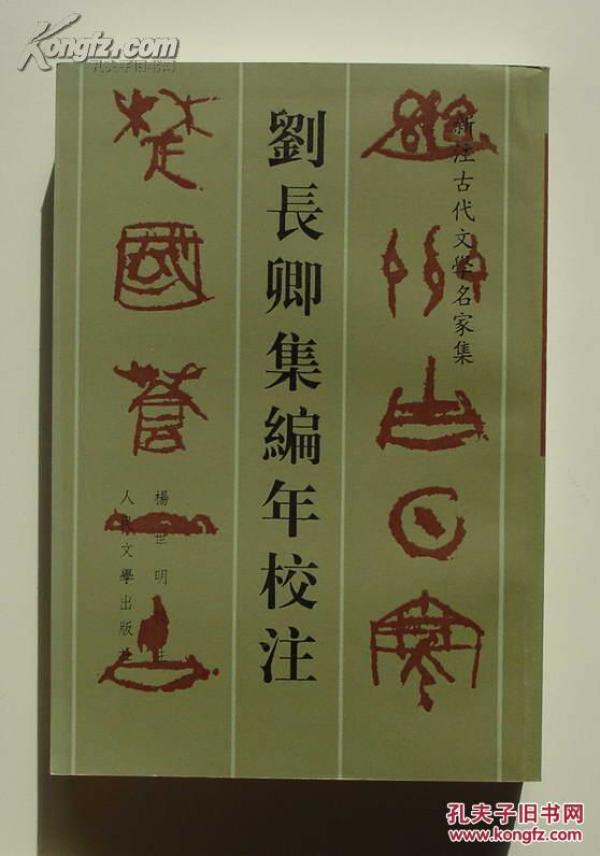 Kongfz.com
孔夫子旧书网
新注古代文學名家集
劉長卿集編年校注
楊世明校注
人民文學出版社
楚國蒼
孔夫子旧书网
www.kongfz.com